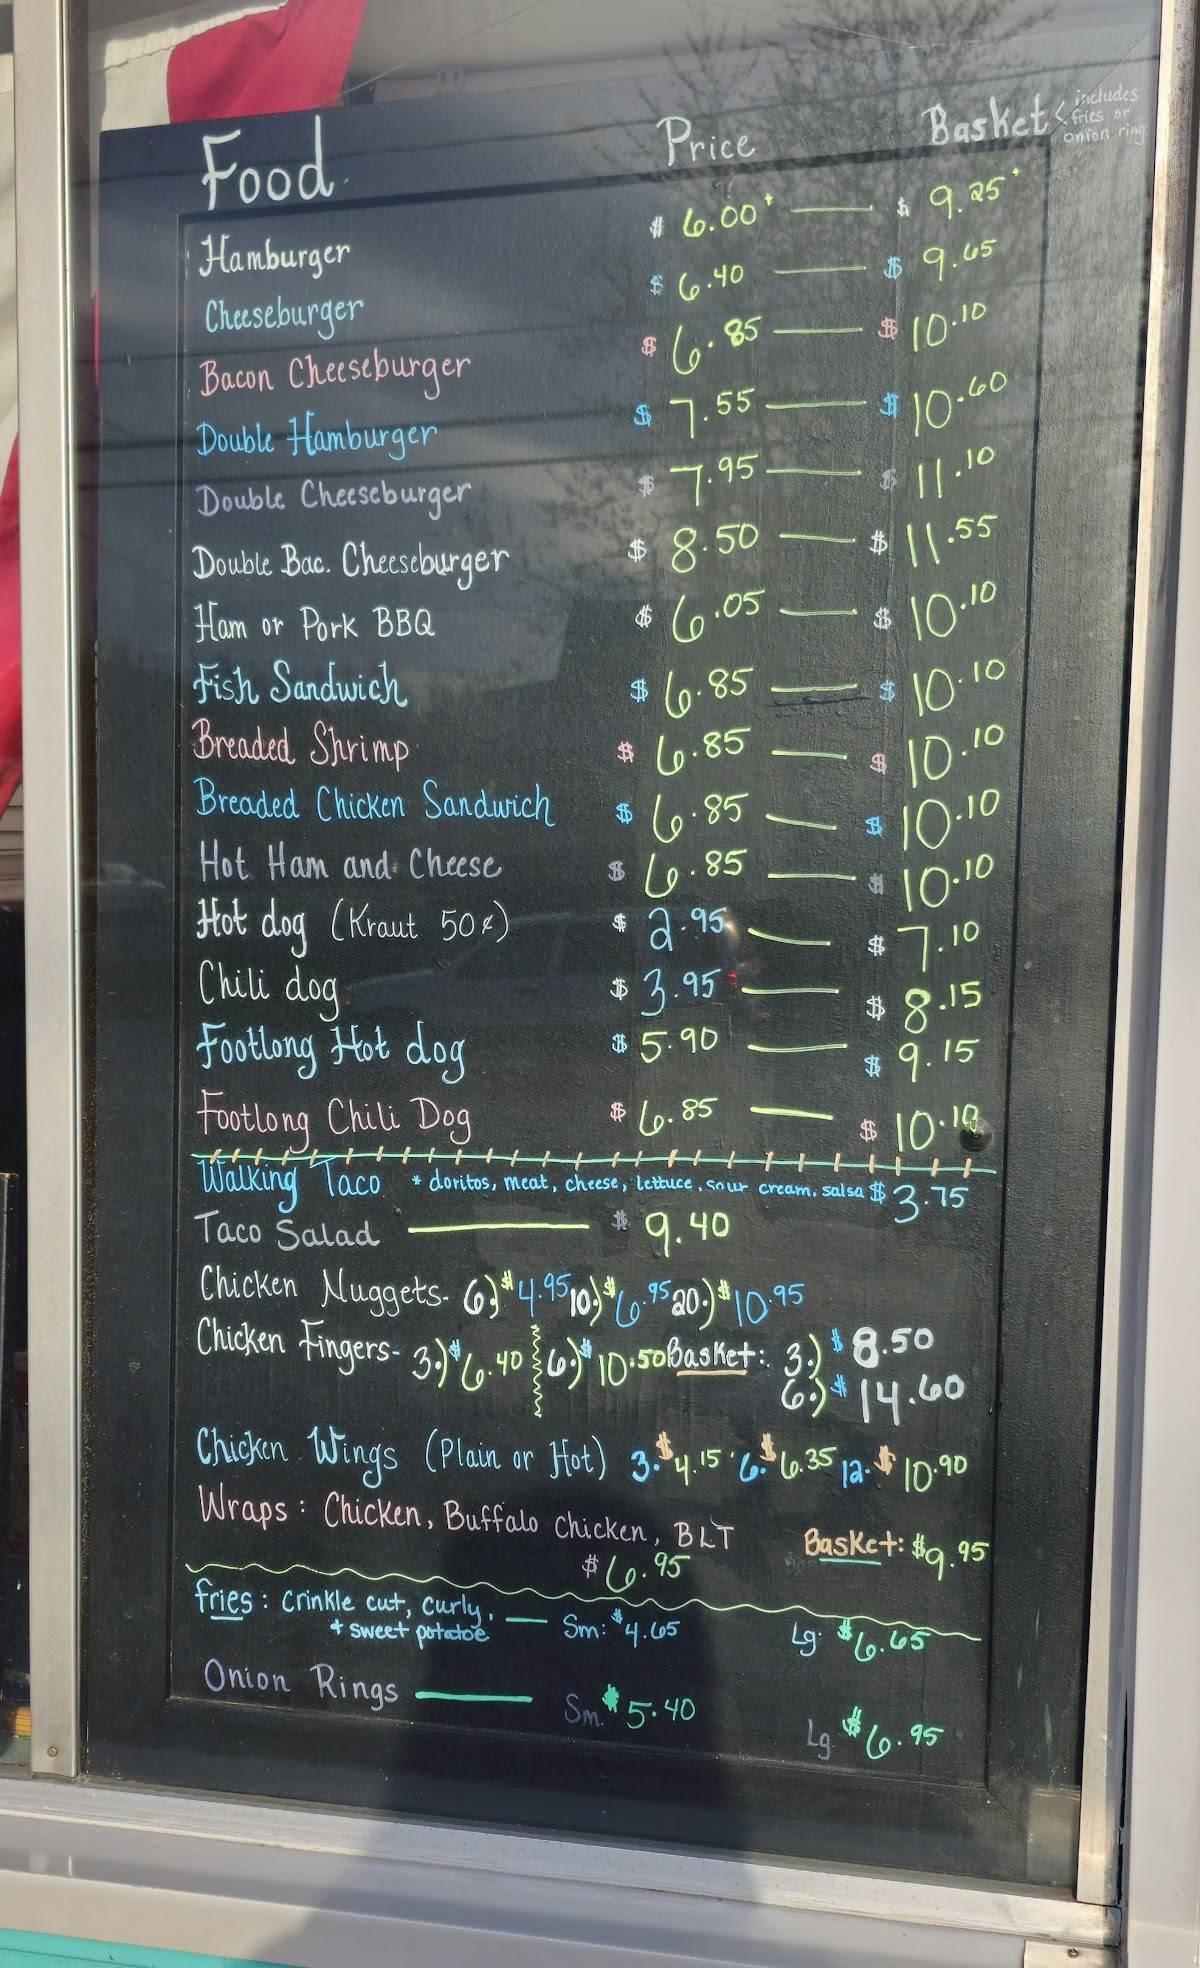 Food Price Basket < includes fries or onion ring
Hamburger $ 6.00+ — $ 9.25+
Cheeseburger $ 6.40 — $ 9.65
Bacon Cheeseburger $ 6.85 — $ 10.10
Double Hamburger $ 7.55 — $ 10.60
Double Cheeseburger $ 7.95 — $ 11.10
Double Bac. Cheeseburger $ 8.50 — $ 11.55
Ham or Pork BBQ $ 6.05 — $ 10.10
Fish Sandwich $ 6.85 — $ 10.10
Breaded Shrimp $ 6.85 — $ 10.10
Breaded Chicken Sandwich $ 6.85 — $ 10.10
Hot Ham and Cheese $ 6.85 — $ 10.10
Hot dog (Kraut 50¢) $ 2.95 — $ 7.10
Chili dog $ 3.95 — $ 8.15
Footlong Hot dog $ 5.90 — $ 9.15
Footlong Chili Dog $ 6.85 — $ 10.10
Walking Taco * doritos, meat, cheese, lettuce, sour cream, salsa $ 3.75
Taco Salad — $ 9.40
Chicken Nuggets- 6.) $4.95 10.) $6.95 20.) $10.95
Chicken Fingers- 3.) $6.40 6.) $10.50 Basket: 3.) $8.50
6.) $14.60
Chicken Wings (Plain or Hot) 3. $4.15 6. $6.35 12. $10.90
Wraps: Chicken, Buffalo Chicken, BLT Basket: $9.95
$6.95
fries: crinkle cut, curly, — Sm: $4.65 Lg. $6.65
+ sweet potatoe
Onion Rings — Sm. $5.40 Lg $6.95